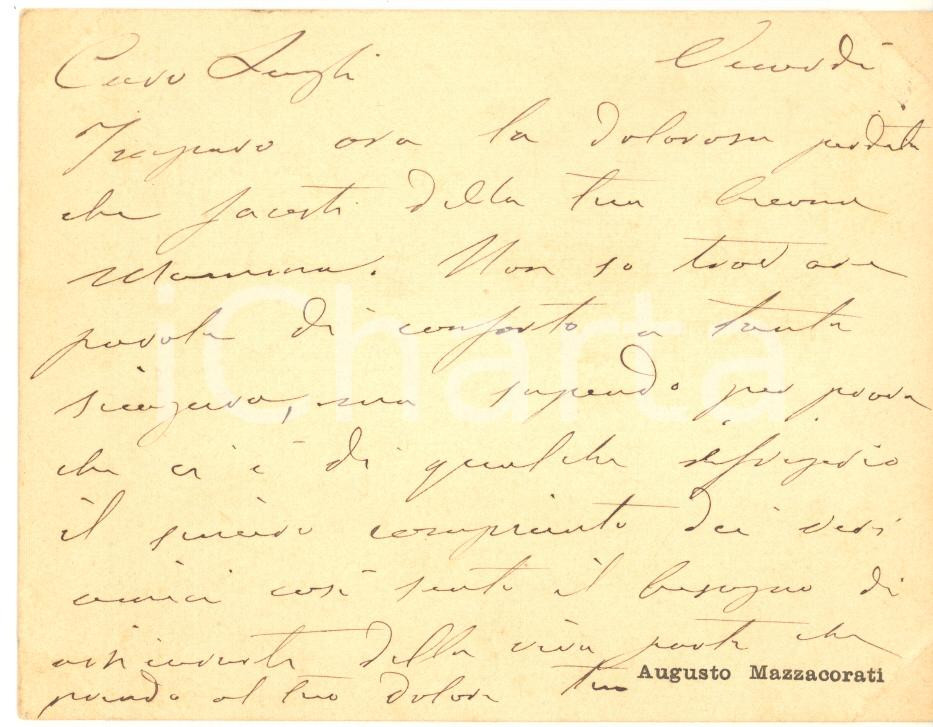 Caro Lugli Venerdì
Imparo ora la dolorosa perdita
che facesti della tua buona
Mamma. Non so trovare
parole di conforto a tanta
sciagura, ma sapendo per prova
che ci è di qualche refrigerio
il sincero compianto dei veri
amici così sento il bisogno di
assicurarti della viva parte che
prendo al tuo dolore tuo Augusto Mazzacorati
iCharta